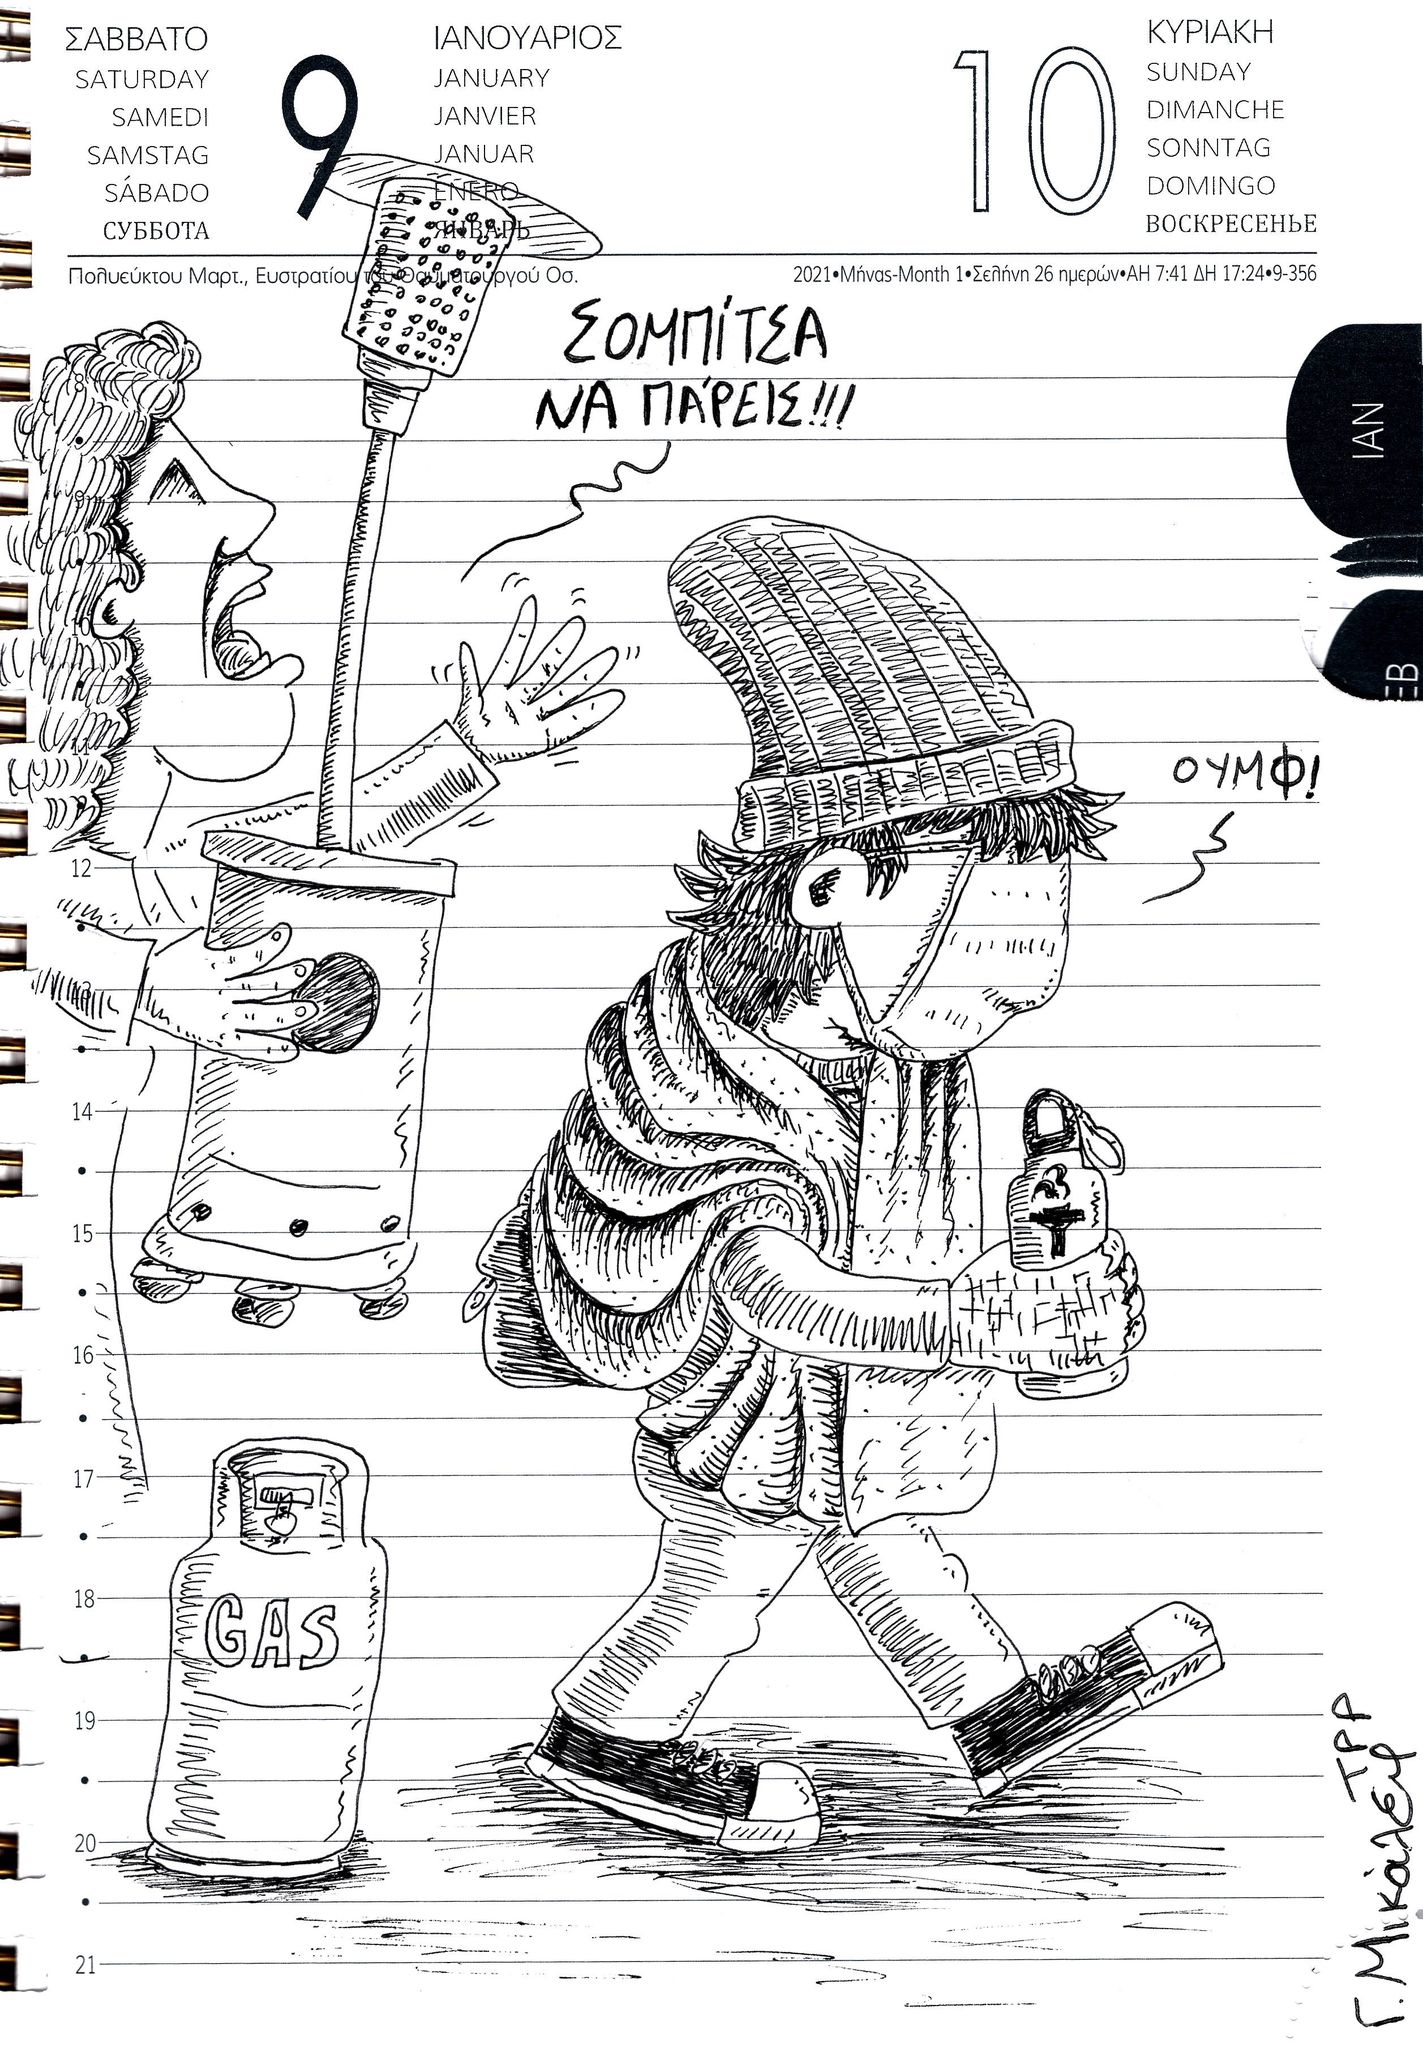 ΣΑΒΒΑΤΟ
SATURDAY
SAMEDI
SAMSTAG
SÁBADO
СУББОТА
9
ΙΑΝΟΥΑΡΙΟΣ
JANUARY
JANVIER
JANUAR
ENERO
ЯНВАРЬ
10
ΚΥΡΙΑΚΗ
SUNDAY
DIMANCHE
SONNTAG
DOMINGO
ВОСКРЕСЕНЬЕ
Πολυεύκτου Μαρτ., Ευστρατίου του Θαυματουργού Οσ.
2021•Μήνας-Month 1•Σελήνη 26 ημερών•ΑΗ 7:41 ΔΗ 17:24•9-356
ΣΟΜΠΊΤΣΑ
ΝΑ ΠΆΡΕΙΣ!!!
ΙΑΝ
ΕΒ
ΟΥΜΦ!
8
9
10
11
12
13
14
15
16
17
18
GAS
19
20
21
Γ. Μικάλεφ